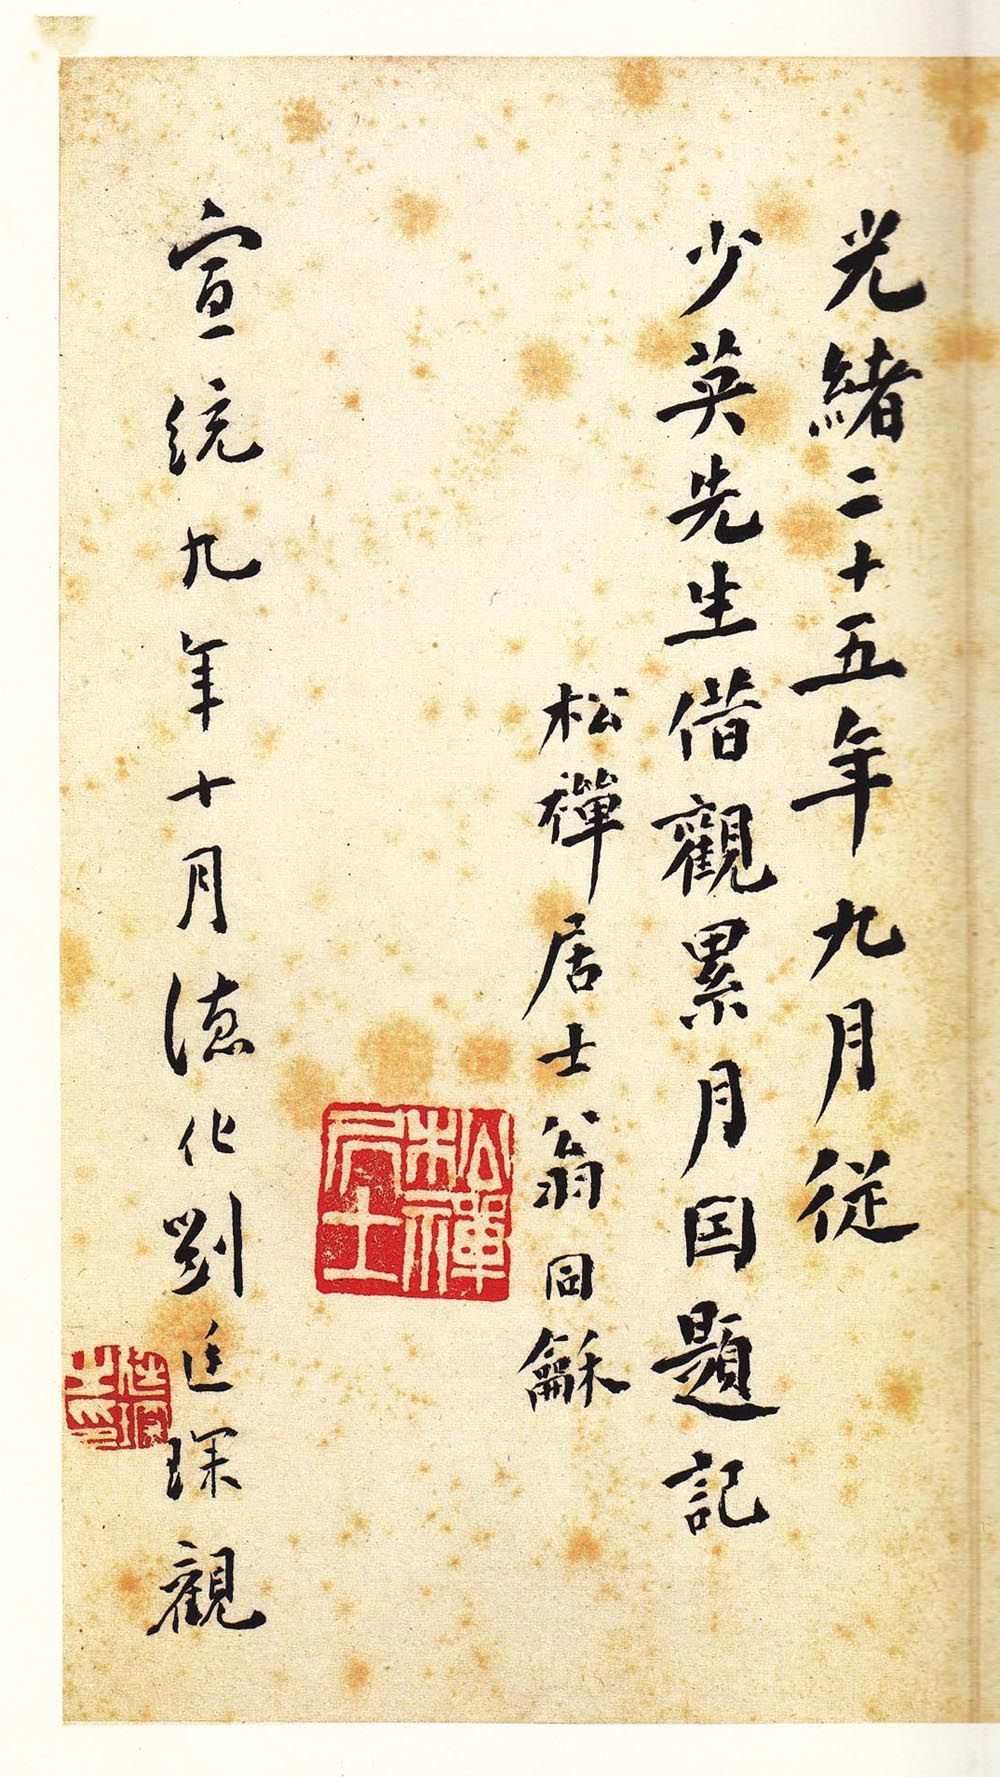 光緒二十五年九月從
少英先生借觀累月因題記
松禪居士翁同龢
松禪居士
宣統九年十月德化劉廷琛觀